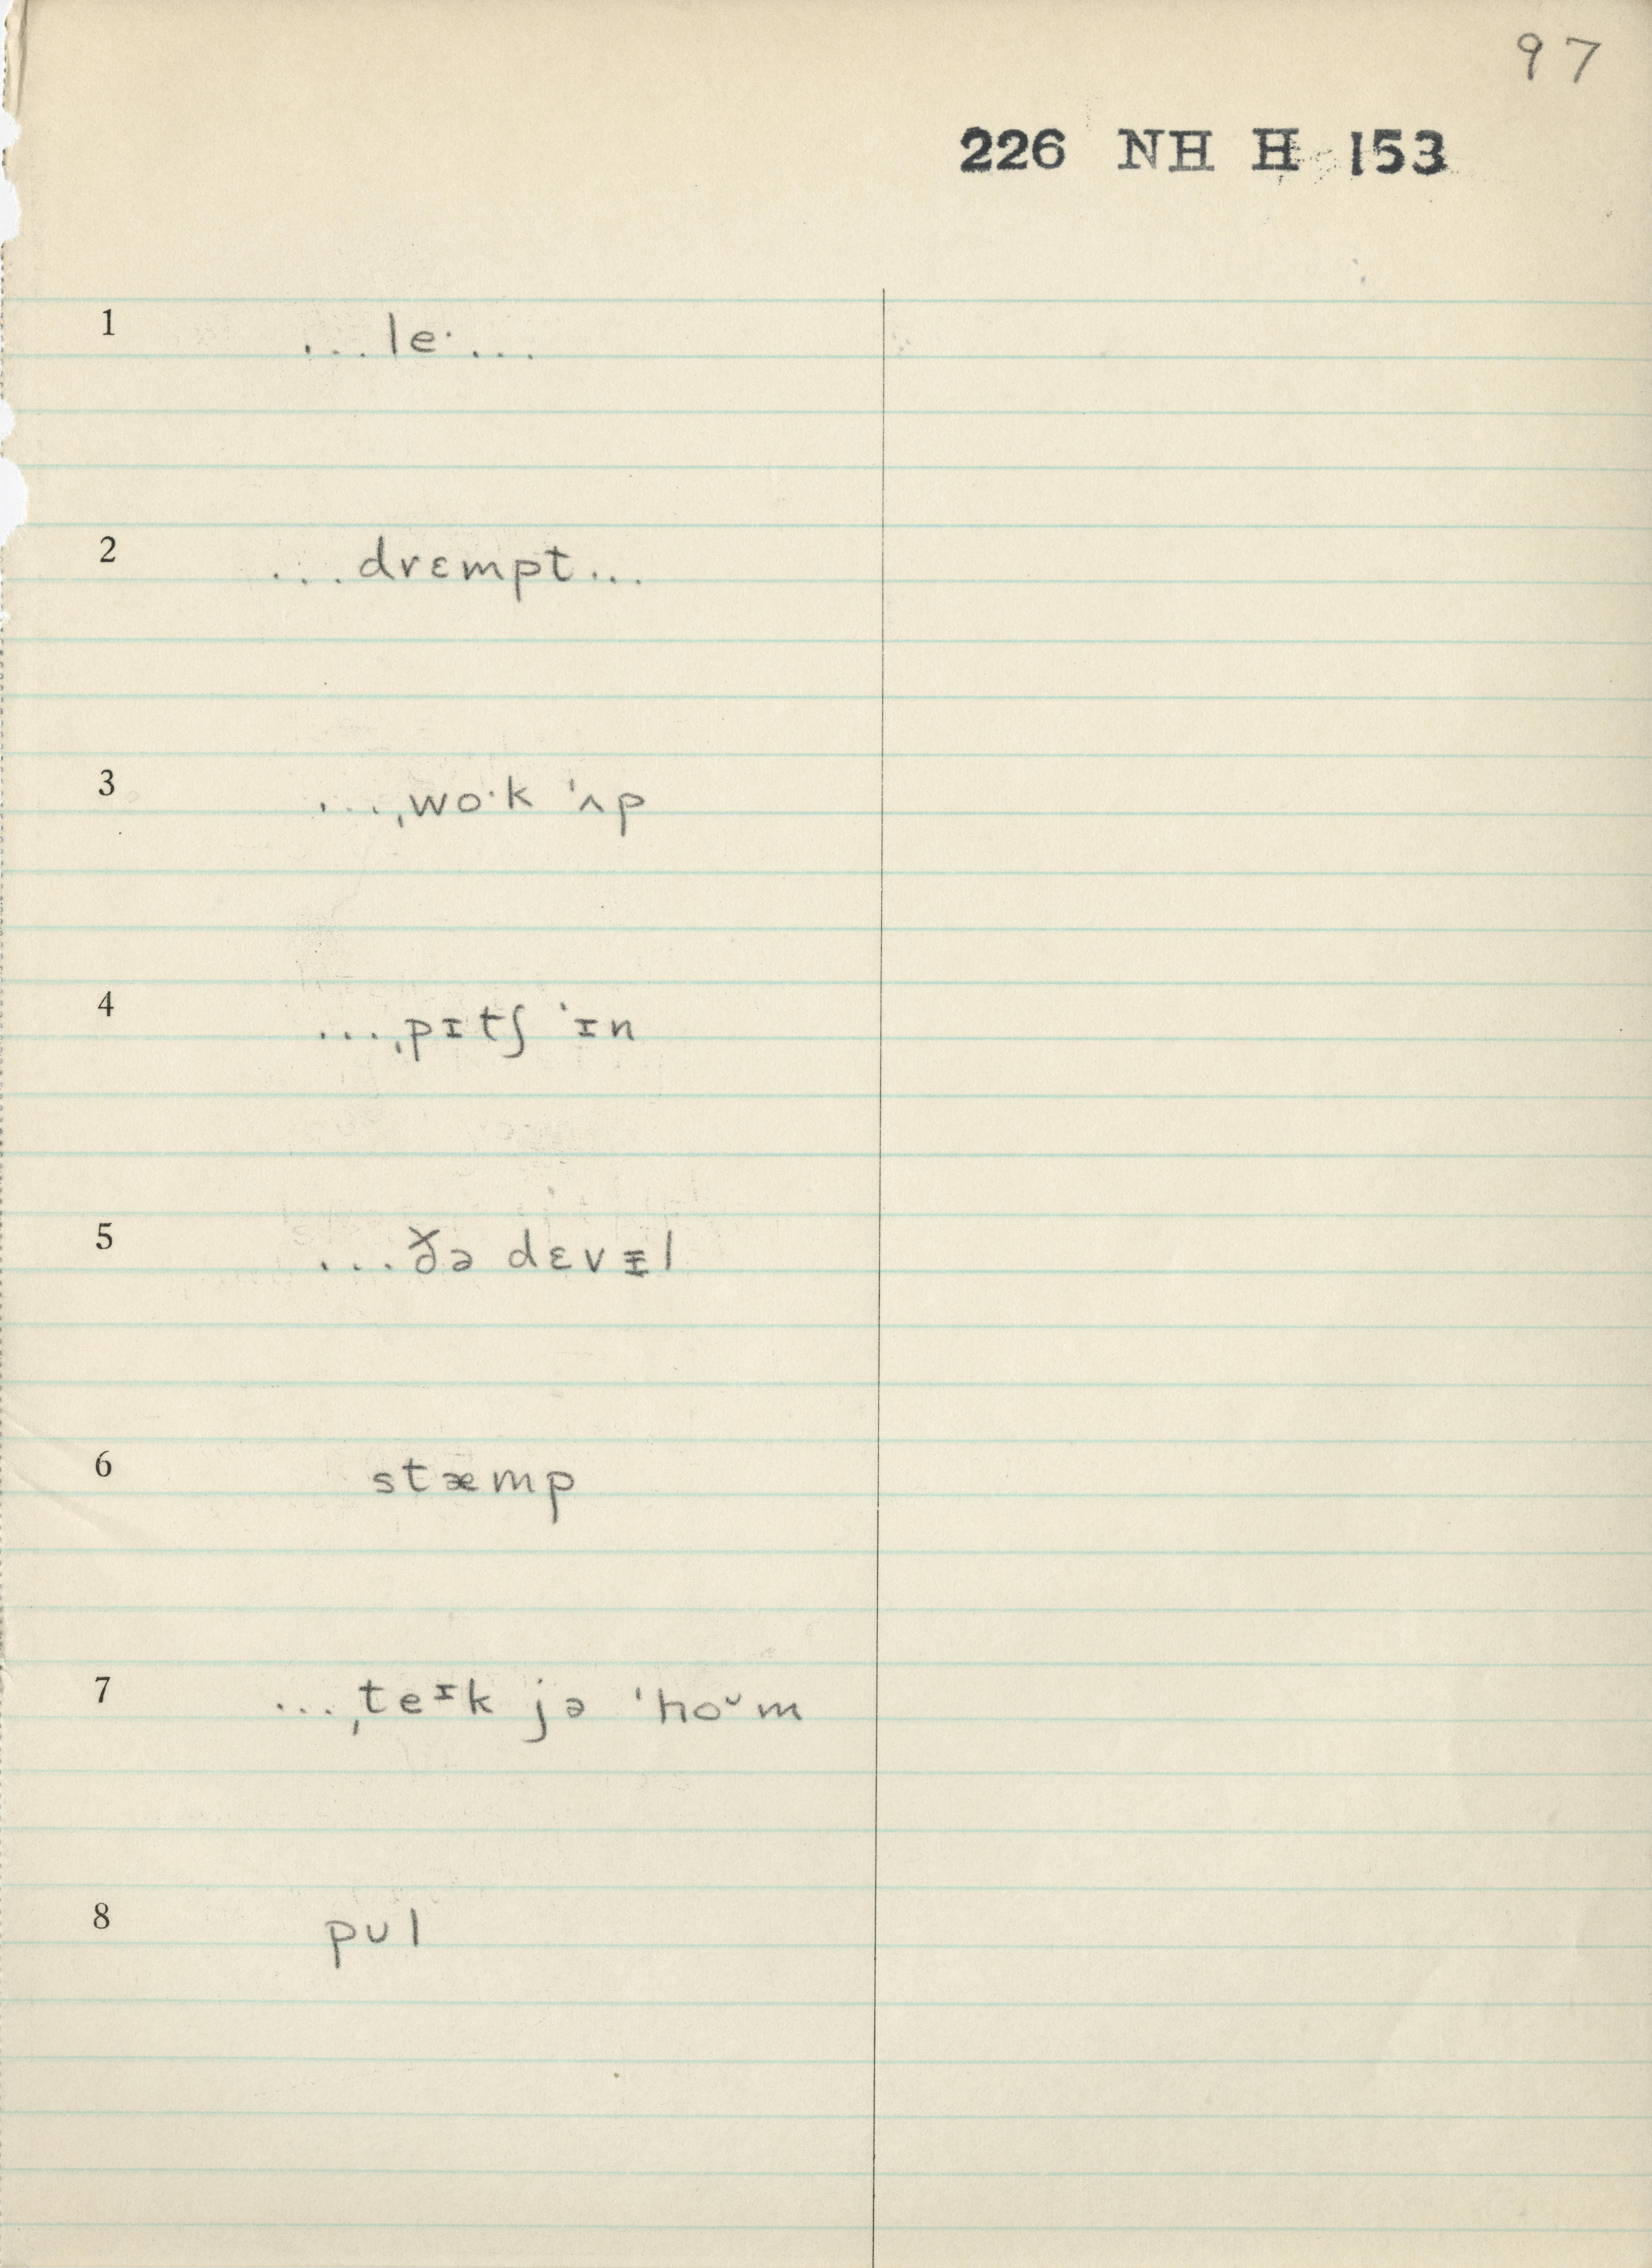 97
226 NH H 153
1 ...leˑ...
2 ...drɛmpt...
3 ...ˌwoˑk ˈʌp
4 ...ˌpɪtʃ ˈɪn
5 ...ðə dɛvᵻl
6 stæmp
7 ...ˌteᶦk jə ˈhoᶷm
8 pʊl